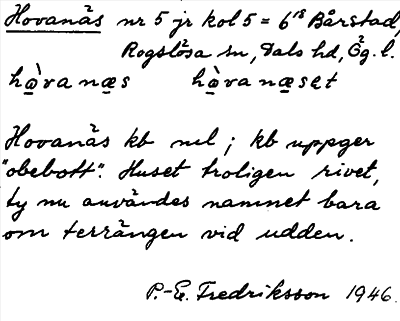 Hovanäs nr 5 jr kol 5 = 6¹⁸ Bårstad,
Rogslösa sn, Dals hd, Ög. l.
hà̲vanæs hà̲vanæset
Hovanäs kb nul; kb uppger
"obebott". Huset troligen rivet,
ty nu användes namnet bara
om terrängen vid udden.
P.-E. Fredriksson 1946.